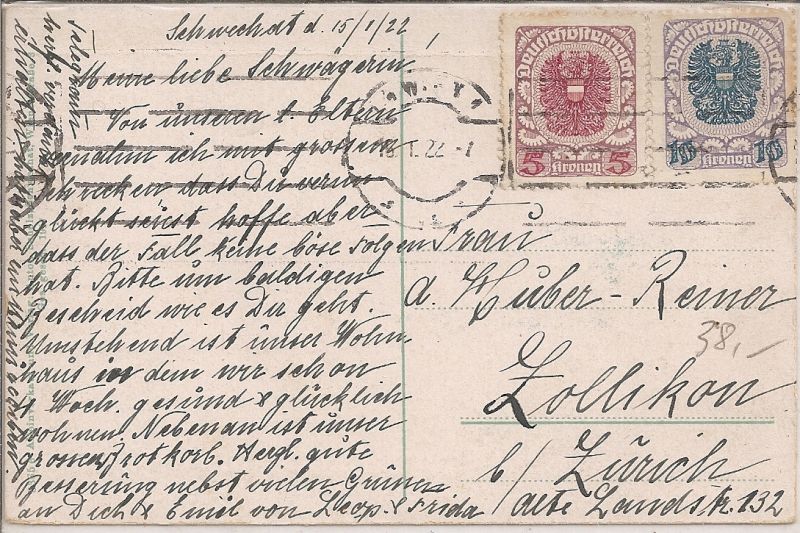 Schwechat d. 15/1/22,
Meine liebe Schwägerin
Von unseren l. Eltern
vernahm ich mit grossem
Schrecken dass Du verun
glückt seiest hoffe aber
dass der Fall keine böse Folgen
hat. Bitte um baldigen
Bescheid wie es Dir geht.
Umstehend ist unser Wohn
haus in dem wir schon
4 Woch. gesund & glücklich
wohnen. Nebenan ist unser
grossen Brotkorb. Herzl. gute
Besserung nebst vielen Grüssen
an Dich & Emil von Leop. & Frida
Deutschösterreich
5 Kronen 5
Deutschösterreich
10 Kronen 10
I. 22
Frau
A. Huber-Reiner
Zollikon
b/ Zürich
alte Landstr. 132
38,-